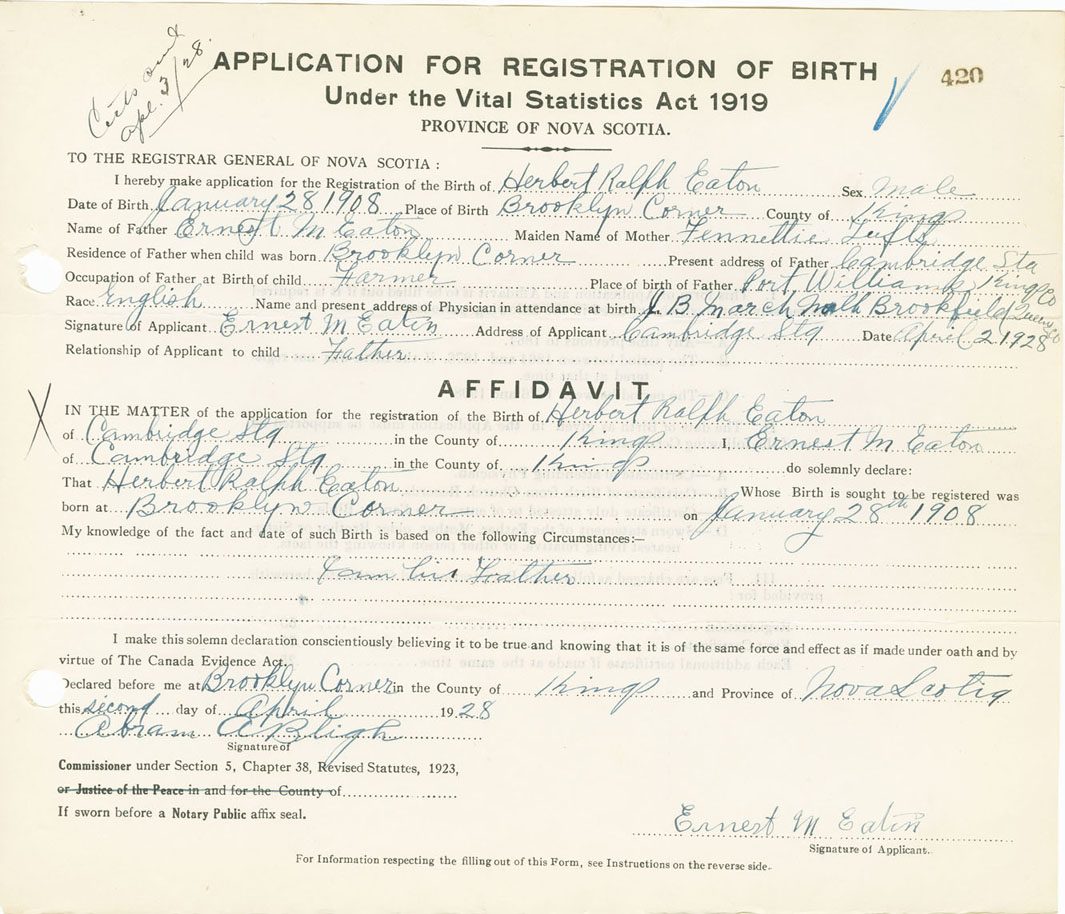 Certs and
Apl. 3/28.
APPLICATION FOR REGISTRATION OF BIRTH
420
Under the Vital Statistics Act 1919
PROVINCE OF NOVA SCOTIA.
TO THE REGISTRAR GENERAL OF NOVA SCOTIA :
I hereby make application for the Registration of the Birth of Herbert Ralph Eaton Sex Male
Date of Birth January 28 1908 Place of Birth Brooklyn Corner County of Kings
Name of Father Ernest M Eaton Maiden Name of Mother Fennettie Tufts
Residence of Father when child was born Brooklyn Corner Present address of Father Cambridge Sta
Occupation of Father at Birth of child Farmer Place of birth of Father Port Williams Kings Co
Race English Name and present address of Physician in attendance at birth J. B. March Nth Brookfield Queens Co
Signature of Applicant Ernest M Eaton Address of Applicant Cambridge Sta Date April 2 1928
Relationship of Applicant to child Father
AFFIDAVIT
X
IN THE MATTER of the application for the registration of the Birth of Herbert Ralph Eaton
of Cambridge Sta in the County of Kings I, Ernest M Eaton
of Cambridge Sta in the County of Kings do solemnly declare:
That Herbert Ralph Eaton Whose Birth is sought to be registered was
born at Brooklyn Corner on January 28th 1908
My knowledge of the fact and date of such Birth is based on the following Circumstances:—
I am his Father
I make this solemn declaration conscientiously believing it to be true and knowing that it is of the same force and effect as if made under oath and by
virtue of The Canada Evidence Act.
Declared before me at Brooklyn Corner in the County of Kings and Province of Nova Scotia
this second day of April 1928
Abram A Bligh
Signature of
Commissioner under Section 5, Chapter 38, Revised Statutes, 1923,
or Justice of the Peace in and for the County of
If sworn before a Notary Public affix seal.
Ernest M Eaton
Signature of Applicant.
For Information respecting the filling out of this Form, see Instructions on the reverse side.